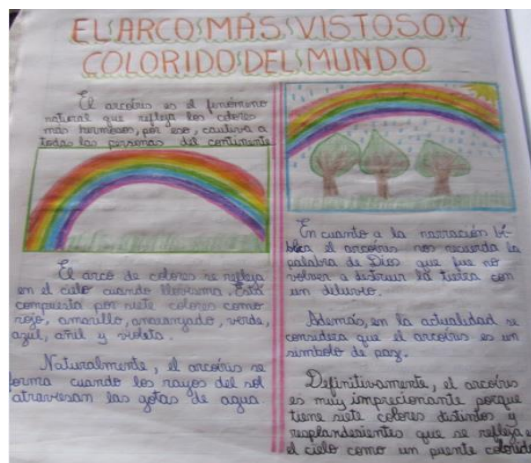 EL ARCO MÁS VISTOSO Y
COLORIDO DEL MUNDO
El arcoíris es el fenómeno
natural que refleja los colores
más hermosos, por eso, cautiva a
todas las personas del continente
El arco de colores se refleja
en el cielo cuando llovizna. Está
compuesta por siete colores como
rojo, amarillo, anaranjado, verde,
azul, añil y violeta.
Naturalmente, el arcoíris se
forma cuando los rayos del sol
atraviesan las gotas de agua.
En cuanto a la narración bí-
blica el arcoíris nos recuerda la
palabra de Dios que fue no
volver a destruir la tierra con
un diluvio.
Además, en la actualidad se
considera que el arcoíris es un
símbolo de paz.
Definitivamente, el arcoíris
es muy imprecionante porque
tiene siete colores distintos y
resplandesientes que se refleja en
el cielo como un puente colorido